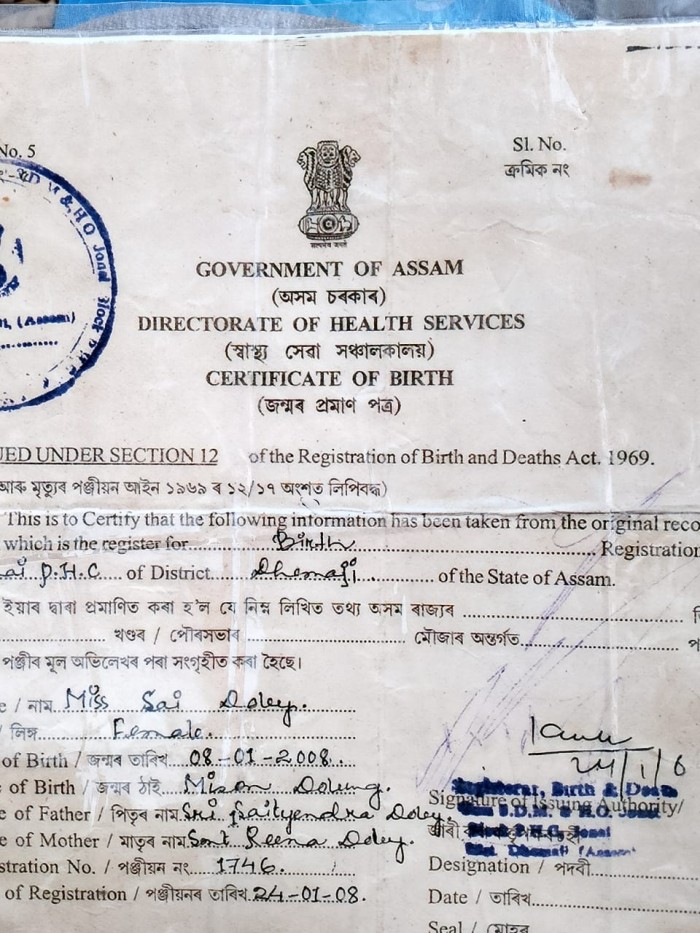 No. 5
Sl. No.
ক্ৰমিক নং
সত্যমেব জয়তে
GOVERNMENT OF ASSAM
(অসম চৰকাৰ)
DIRECTORATE OF HEALTH SERVICES
(স্বাস্থ্য সেৱা সঞ্চালকালয়)
CERTIFICATE OF BIRTH
(জন্মৰ প্ৰমাণ পত্ৰ)
M & H.O Jonai Block
(Assam)
UED UNDER SECTION 12 of the Registration of Birth and Deaths Act. 1969.
আৰু মৃত্যুৰ পঞ্জীয়ন আইন ১৯৬৯ ৰ ১২/১৭ অংশত লিপিবদ্ধ)
This is to Certify that the following information has been taken from the original reco
which is the register for Birth Registration
ai P.H.C of District Dhemaji of the State of Assam.
ইয়াৰ দ্বাৰা প্ৰমাণিত কৰা হ'ল যে নিম্ন লিখিত তথ্য অসম ৰাজ্যৰ
খণ্ডৰ / পৌৰসভাৰ মৌজাৰ অন্তৰ্গত
পঞ্জীৰ মূল অভিলেখৰ পৰা সংগৃহীত কৰা হৈছে।
e / নাম Miss Sai Doley.
/ লিঙ্গ Female.
of Birth / জন্মৰ তাৰিখ 08-01-2008.
of Birth / জন্মৰ ঠাই Mison Dolung.
e of Father / পিতৃৰ নাম Sri Saityendra Doley
e of Mother / মাতৃৰ নাম Smt Reena Doley.
stration No. / পঞ্জীয়ন নং 1746.
of Registration / পঞ্জীয়নৰ তাৰিখ 24-01-08.
Registerar, Birth & Death
Signature of Issuing Authority/
S.D.M. & H.O. Jonai
P.H.C. Jonai
Dist. Dhemaji (Assam)
Designation / পদবী
Date / তাৰিখ
Seal / মোহৰ